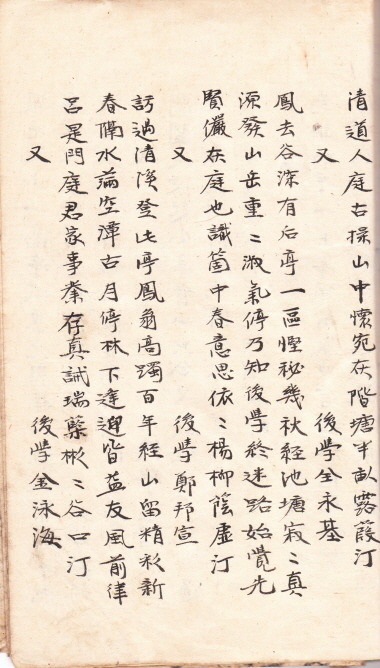 清道人庭古操山中懷宛在階塘半畝露葭汀
又 後學全永基
鳳去谷深有后亭一區慳秘幾秋經池塘寂〻真
源發山岳重〻淑氣停乃知後學終迷路始覺先
賢儼在庭也識箇中春意思依〻楊柳蔭虛汀
又 後學鄭邦宣
訪過清溪登此亭鳳翁高躅百年經山留精彩新
春隔水蕩空潭古月停林下逢迎皆益友風前律
呂是門庭君家事業存真誠瑞藥彬〻谷口汀
又 後學金泳海